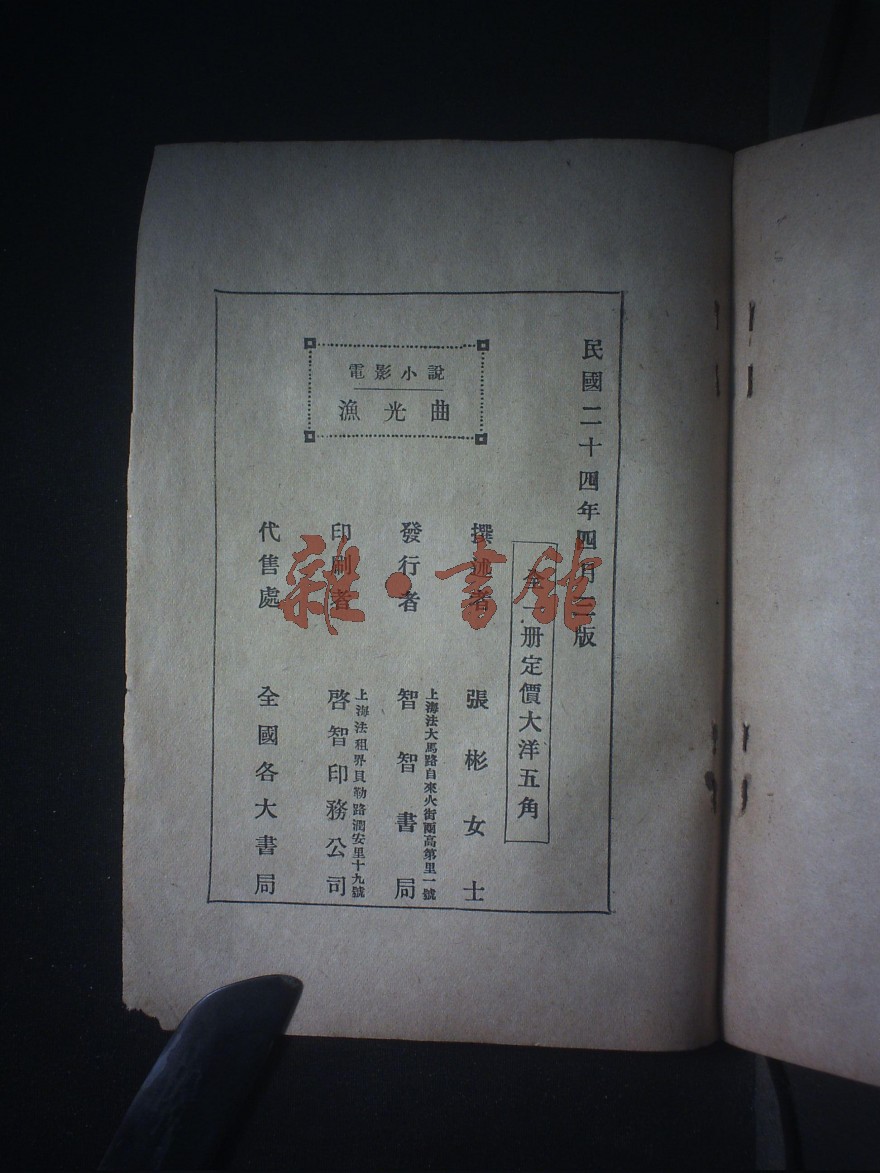 民國二十四年四月二版
全一册定價大洋五角
撰述者 張彬女士
上海法大馬路自來火街南高第里一號
發行者 智智書局
上海法租界貝勒路潤安里十九號
印刷者 啓智印務公司
代售處 全國各大書局
電影小說
漁光曲
雜·書館